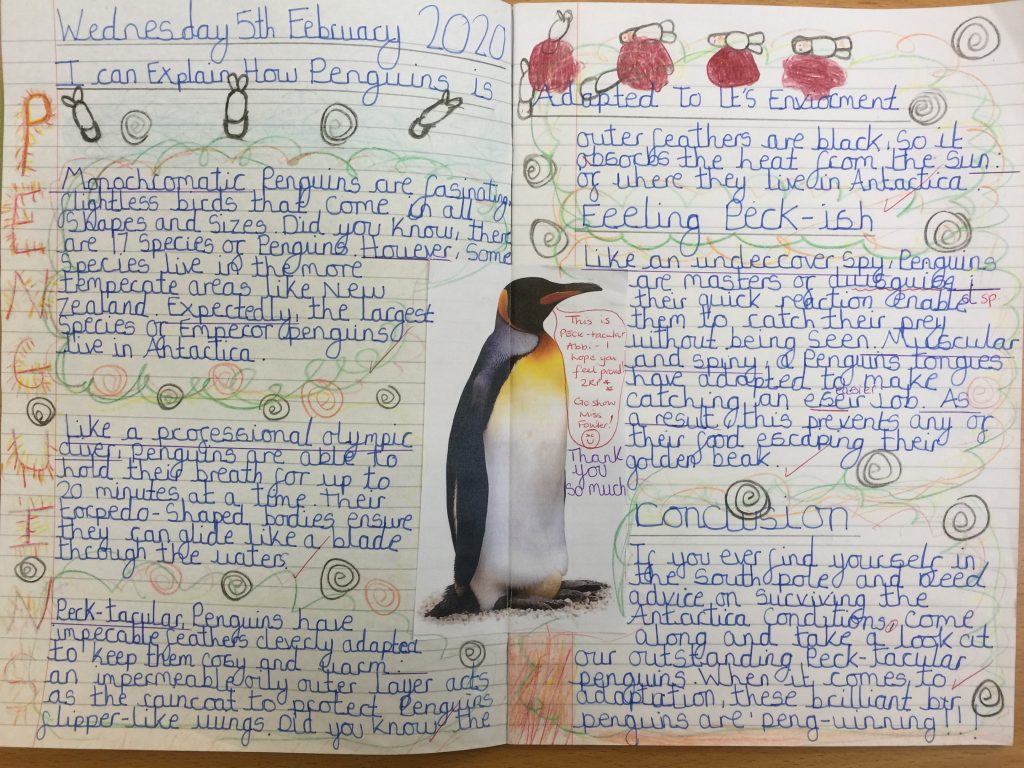 Wednesday 5th February 2020
I can Explain How Penguins is
Adapted To It's Enviroment
PEENGUIENS
Monochromatic Penguins are fasinating,
flightless birds that come in all
shapes and sizes. Did you know, there
are 17 species of Penguins. However, some
species live in the more
temperate areas like New
Zealand. Expectedly, the largest
species of Emperor penguins
live in Antactica.
Like a professional olympic
diver, Penguins are able to
hold their breath for up to
20 minutes at a time. Their
torpedo-shaped bodies ensure
they can glide like a blade
through the waters.
Peck-tacular Penguins have
impecable feathers cleverly adapted
to keep them cosy and warm.
an impermeable oily outer layer acts
as the raincoat to protect Penguins
flipper-like wings. Did you know the
outer feathers are black, so it
absorbs the heat from the sun
of where they live in Antactica
Feeling Peck-ish
Like an undercover spy, Penguins
are masters of
their quick reaction enables sp.
them to catch their prey
without being seen. Muscular
and spiny a Penguins tongues
have adapted to make
easier
catching an job. As
a result, this prevents any of
their food escaping their
golden beak.
Conclusion
If you ever find yourself in
the south pole and need
advice on surviving the
Antactica conditions, come
along and take a look at
our outstanding Peck-tacular
penguins. When it comes to
adaptation, these brilliant
penguins are 'peng-winning'!!
This is
Peck-tacular
Abbi - I
hope you
feel proud!
2RP
Go show
Miss
Fowler!
Thank
you
so much